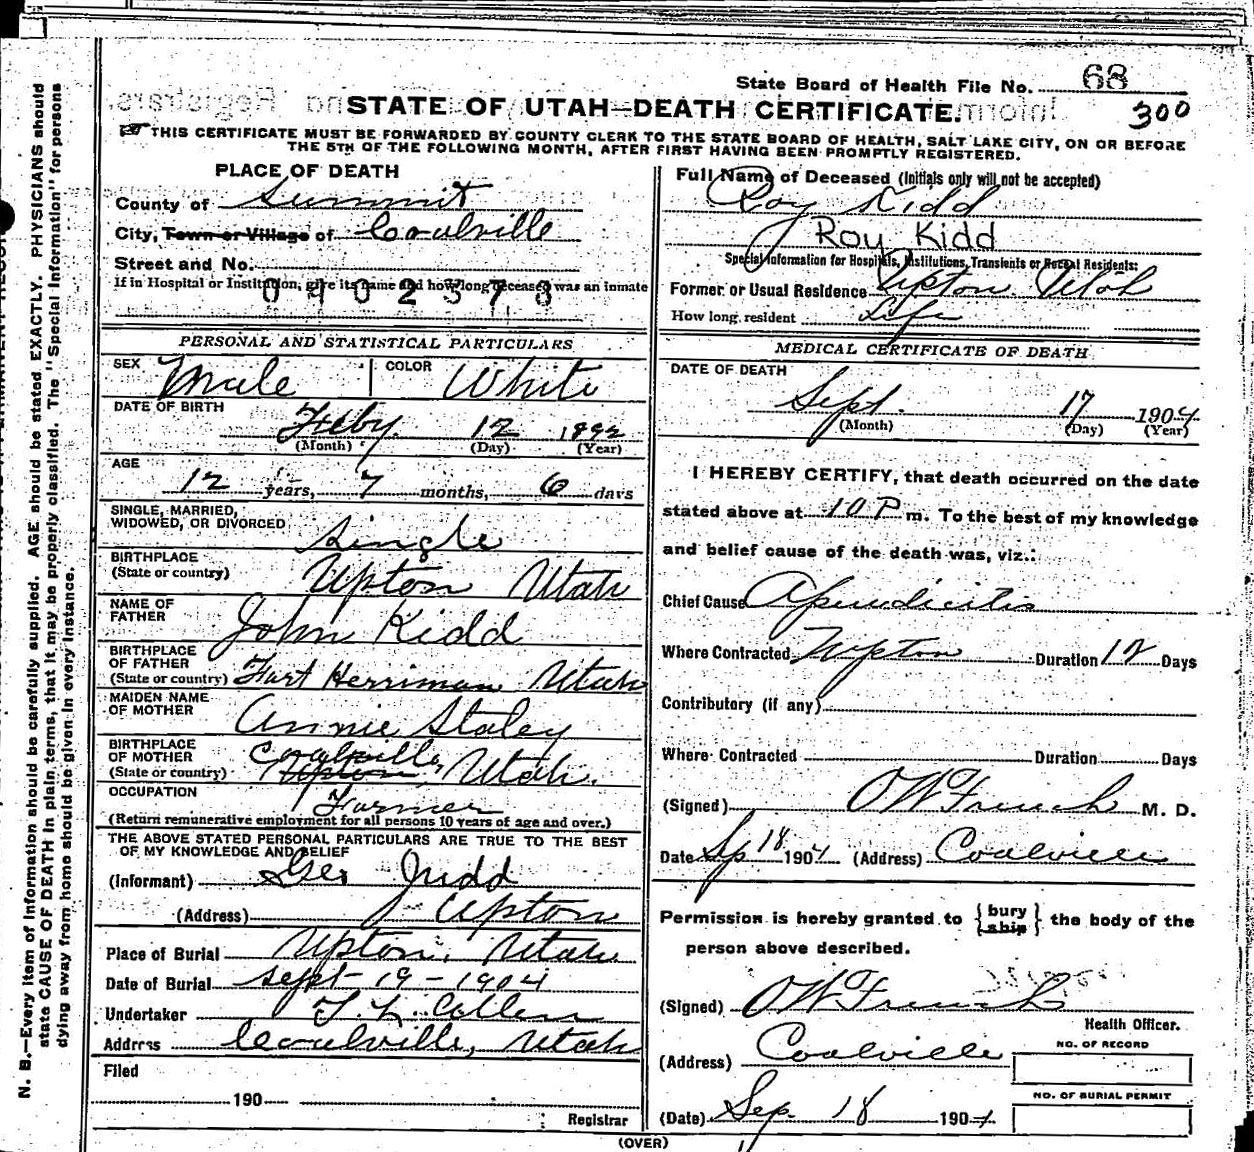 State Board of Health File No. 68
STATE OF UTAH—DEATH CERTIFICATE.
300
THIS CERTIFICATE MUST BE FORWARDED BY COUNTY CLERK TO THE STATE BOARD OF HEALTH, SALT LAKE CITY, ON OR BEFORE
THE 5TH OF THE FOLLOWING MONTH, AFTER FIRST HAVING BEEN PROMPTLY REGISTERED.
PLACE OF DEATH
County of Summit
City, Town or Village of Coalville
Street and No.
If in Hospital or Institution, give its name and how long deceased was an inmate
0402573
PERSONAL AND STATISTICAL PARTICULARS
SEX Male COLOR White
DATE OF BIRTH
Feby. 12 1892
(Month) (Day) (Year)
AGE
12 years, 7 months, 6 days
SINGLE, MARRIED,
WIDOWED, OR DIVORCED Single
BIRTHPLACE
(State or country) Upton Utah
NAME OF
FATHER John Kidd
BIRTHPLACE
OF FATHER
(State or country) Fort Herriman Utah
MAIDEN NAME
OF MOTHER Annie Staley
BIRTHPLACE
OF MOTHER Coalville,
(State or country) Upton, Utah.
OCCUPATION
Farmer
(Return remunerative employment for all persons 10 years of age and over.)
THE ABOVE STATED PERSONAL PARTICULARS ARE TRUE TO THE BEST
OF MY KNOWLEDGE AND BELIEF
(Informant) Geo Judd
(Address) Upton
Place of Burial Upton, Utah
Date of Burial Sept-19-1904
Undertaker
Address Coalville, Utah
Filed
190
Registrar
Full Name of Deceased (Initials only will not be accepted)
Roy Kidd
Roy Kidd
Special Information for Hospitals, Institutions, Transients or Recent Residents:
Former or Usual Residence Upton Utah
How long resident Life
MEDICAL CERTIFICATE OF DEATH
DATE OF DEATH
Sept. 17 1904
(Month) (Day) (Year)
I HEREBY CERTIFY, that death occurred on the date
stated above at 10 P m. To the best of my knowledge
and belief cause of the death was, viz.:
Chief Cause Apendicitis
Where Contracted Upton Duration 12 Days
Contributory (if any)
Where Contracted Duration Days
(Signed) OW French M. D.
Date Sp 18 1904 (Address) Coalville
Permission is hereby granted to {bury ship} the body of the
person above described.
(Signed) OW French
Health Officer.
(Address) Coalville
NO. OF RECORD
NO. OF BURIAL PERMIT
(Date) Sep. 18 1904
(OVER)
N. B.—Every item of information should be carefully supplied. AGE should be stated EXACTLY. PHYSICIANS should
state CAUSE OF DEATH in plain terms, that it may be properly classified. The "Special Information" for persons
dying away from home should be given in every instance.